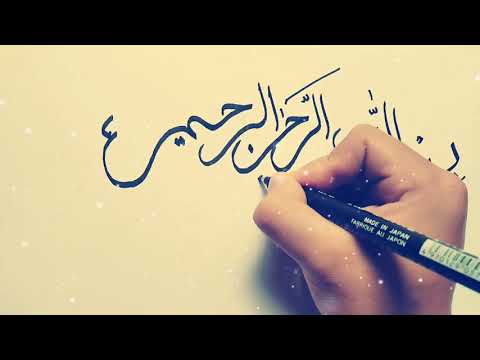 الله الرَّحمن الرحيم
MADE IN JAPAN
FABRIQUE AU JAPON